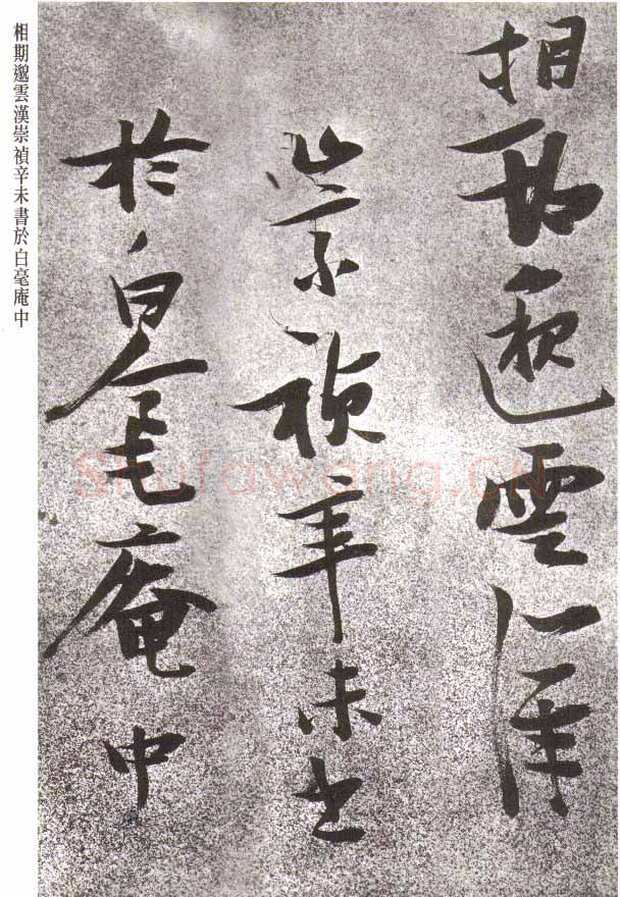 相期邈雲漢
崇禎辛未書
於白毫庵中
相期邈雲漢崇禎辛未書於白毫庵中
Shufawang.CN